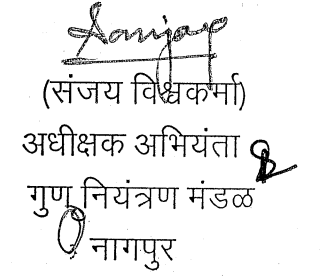 Sanjay
(संजय विश्वकर्मा)
अधीक्षक अभियंता
गुण नियंत्रण मंडळ
नागपुर